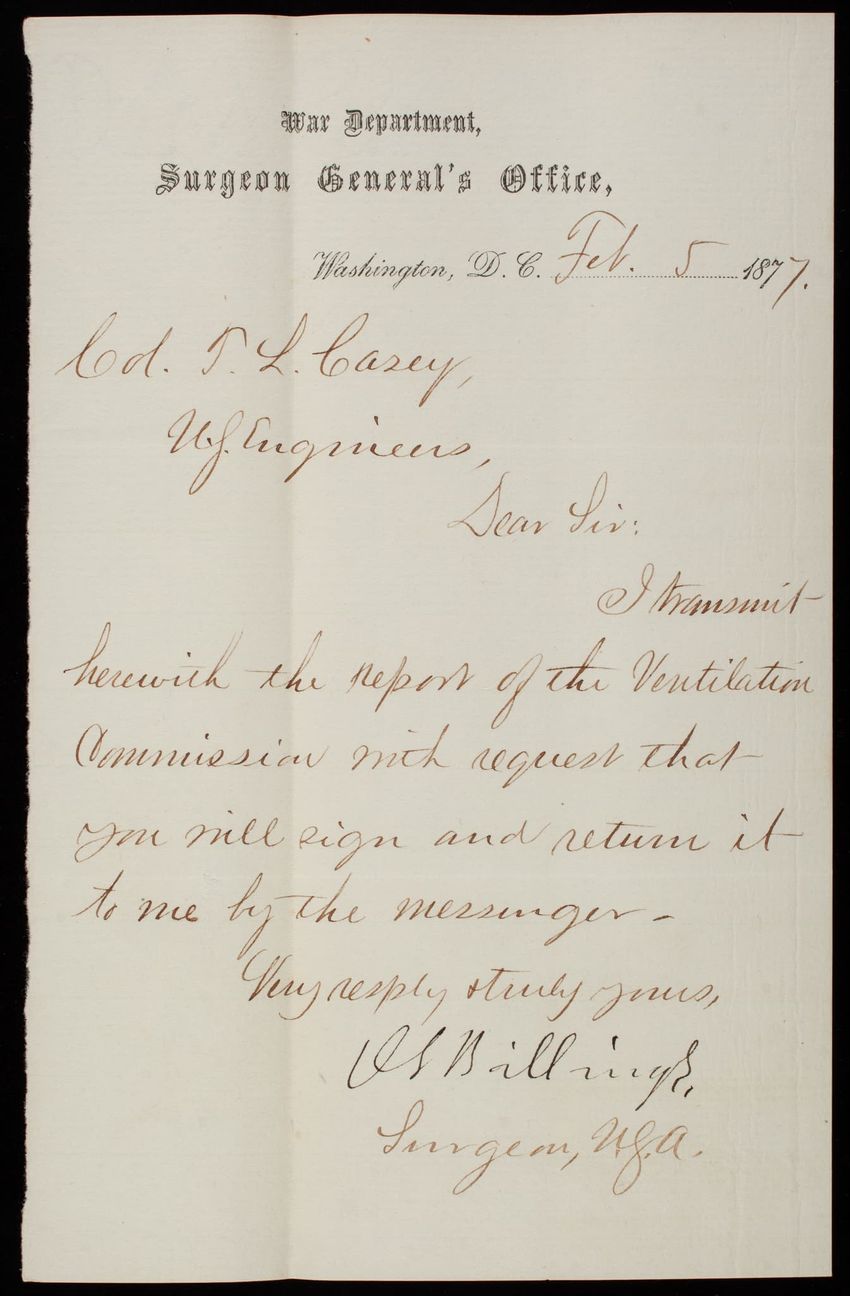 War Department,
Surgeon General's Office,
Washington, D. C. Feb. 5 1877.
Col. T. L. Casey,
U.S. Engineers,
Dear Sir:
I transmit
herewith the report of the Ventilation
Commission with request that
you will sign and return it
to me by the messenger -
Very resply & truly yours,
J S Billings,
Surgeon, U.S.A.